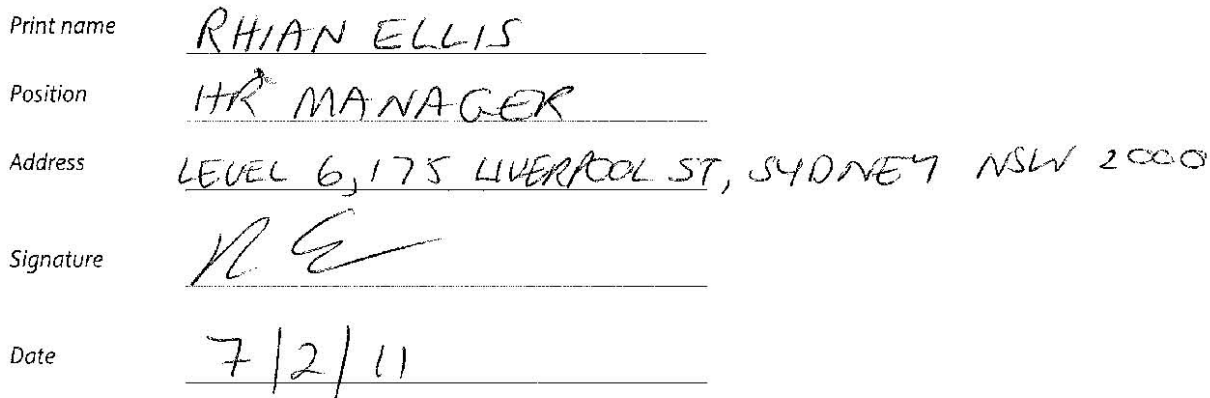 Print name RHIAN ELLIS
Position HR MANAGER
Address LEVEL 6, 175 LIVERPOOL ST, SYDNEY NSW 2000
Signature RE
Date 7/2/11